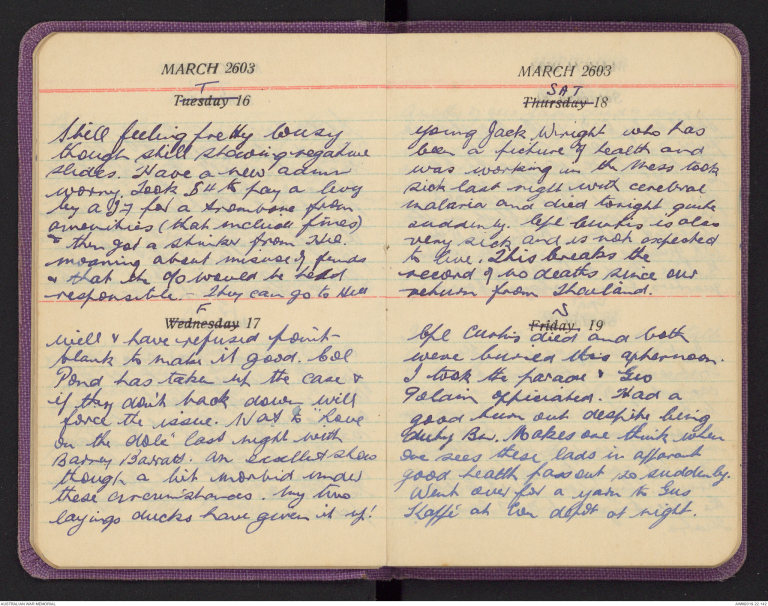 MARCH 2603
T
Tuesday 16
Still feeling pretty lousy
though still showing negative
slides. Have a new admin
worry. Took $4 to pay a levy
by a IJ for a trombone from
amenities (that includes fines)
& then got a stinker from HQ.
moaning about misuse of funds
& that the Q/o would be held
responsible. - They can go to Hell
F
Wednesday 17
will & have refused point-
blank to make it good. Col
Pond has taken up the case &
if they don't back down will
force the issue. Was to "Love
on the dole" last night with
Barney Barratt. An excellent show
though a bit morbid under
these circumstances. My two
laying ducks have given it up!
MARCH 2603
SAT
Thursday 18
young Jack Wright who has
been a picture of health and
was working in the Mess took
sick last night with cerebral
malaria and died tonight quite
suddenly. Cpl Curtis is also
very sick and is not expected
to live. This breaks the
record of no deaths since our
return from Thailand.
S
Friday, 19
Cpl Curtis died and both
were buried this afternoon.
I took the parade & Geo
Polain officiated. Had a
good turn out despite being
duty Bn. Makes one think when
one sees these lads in apparent
good health pass out so suddenly.
Went over for a yarn to Gus
at Con depot at night.
AUSTRALIAN WAR MEMORIAL